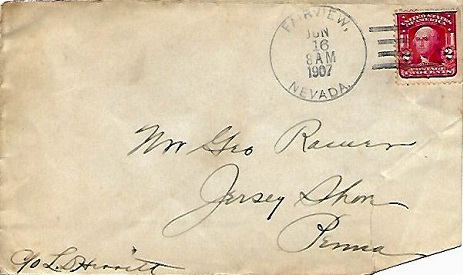 FAIRVIEW,
JUN
16
8 AM
1907
NEVADA.
UNITED STATES OF AMERICA
2 2
POSTAGE
TWO CENTS
Mr Geo
Jersey Shore
Penna
c/o L.